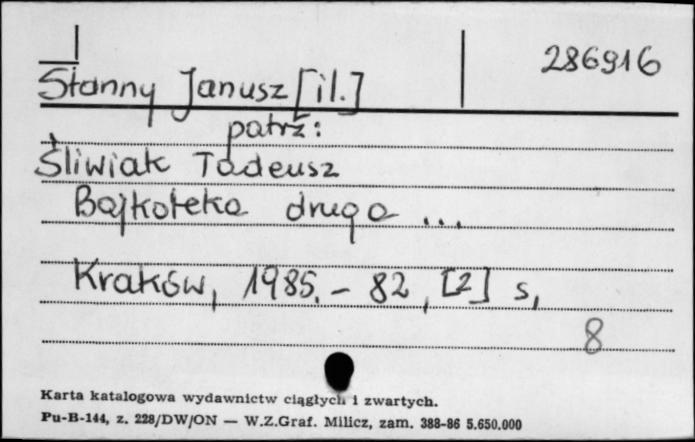 286916
Stanny Janusz [il.]
patrz:
Śliwiak Tadeusz
Bajkoteka druga ...
Kraków, 1985. – 82, [2] s.
8
Karta katalogowa wydawnictw ciągłych i zwartych.
Pu-B-144, z. 228/DW/ON — W.Z.Graf. Milicz, zam. 388-86 5.650.000